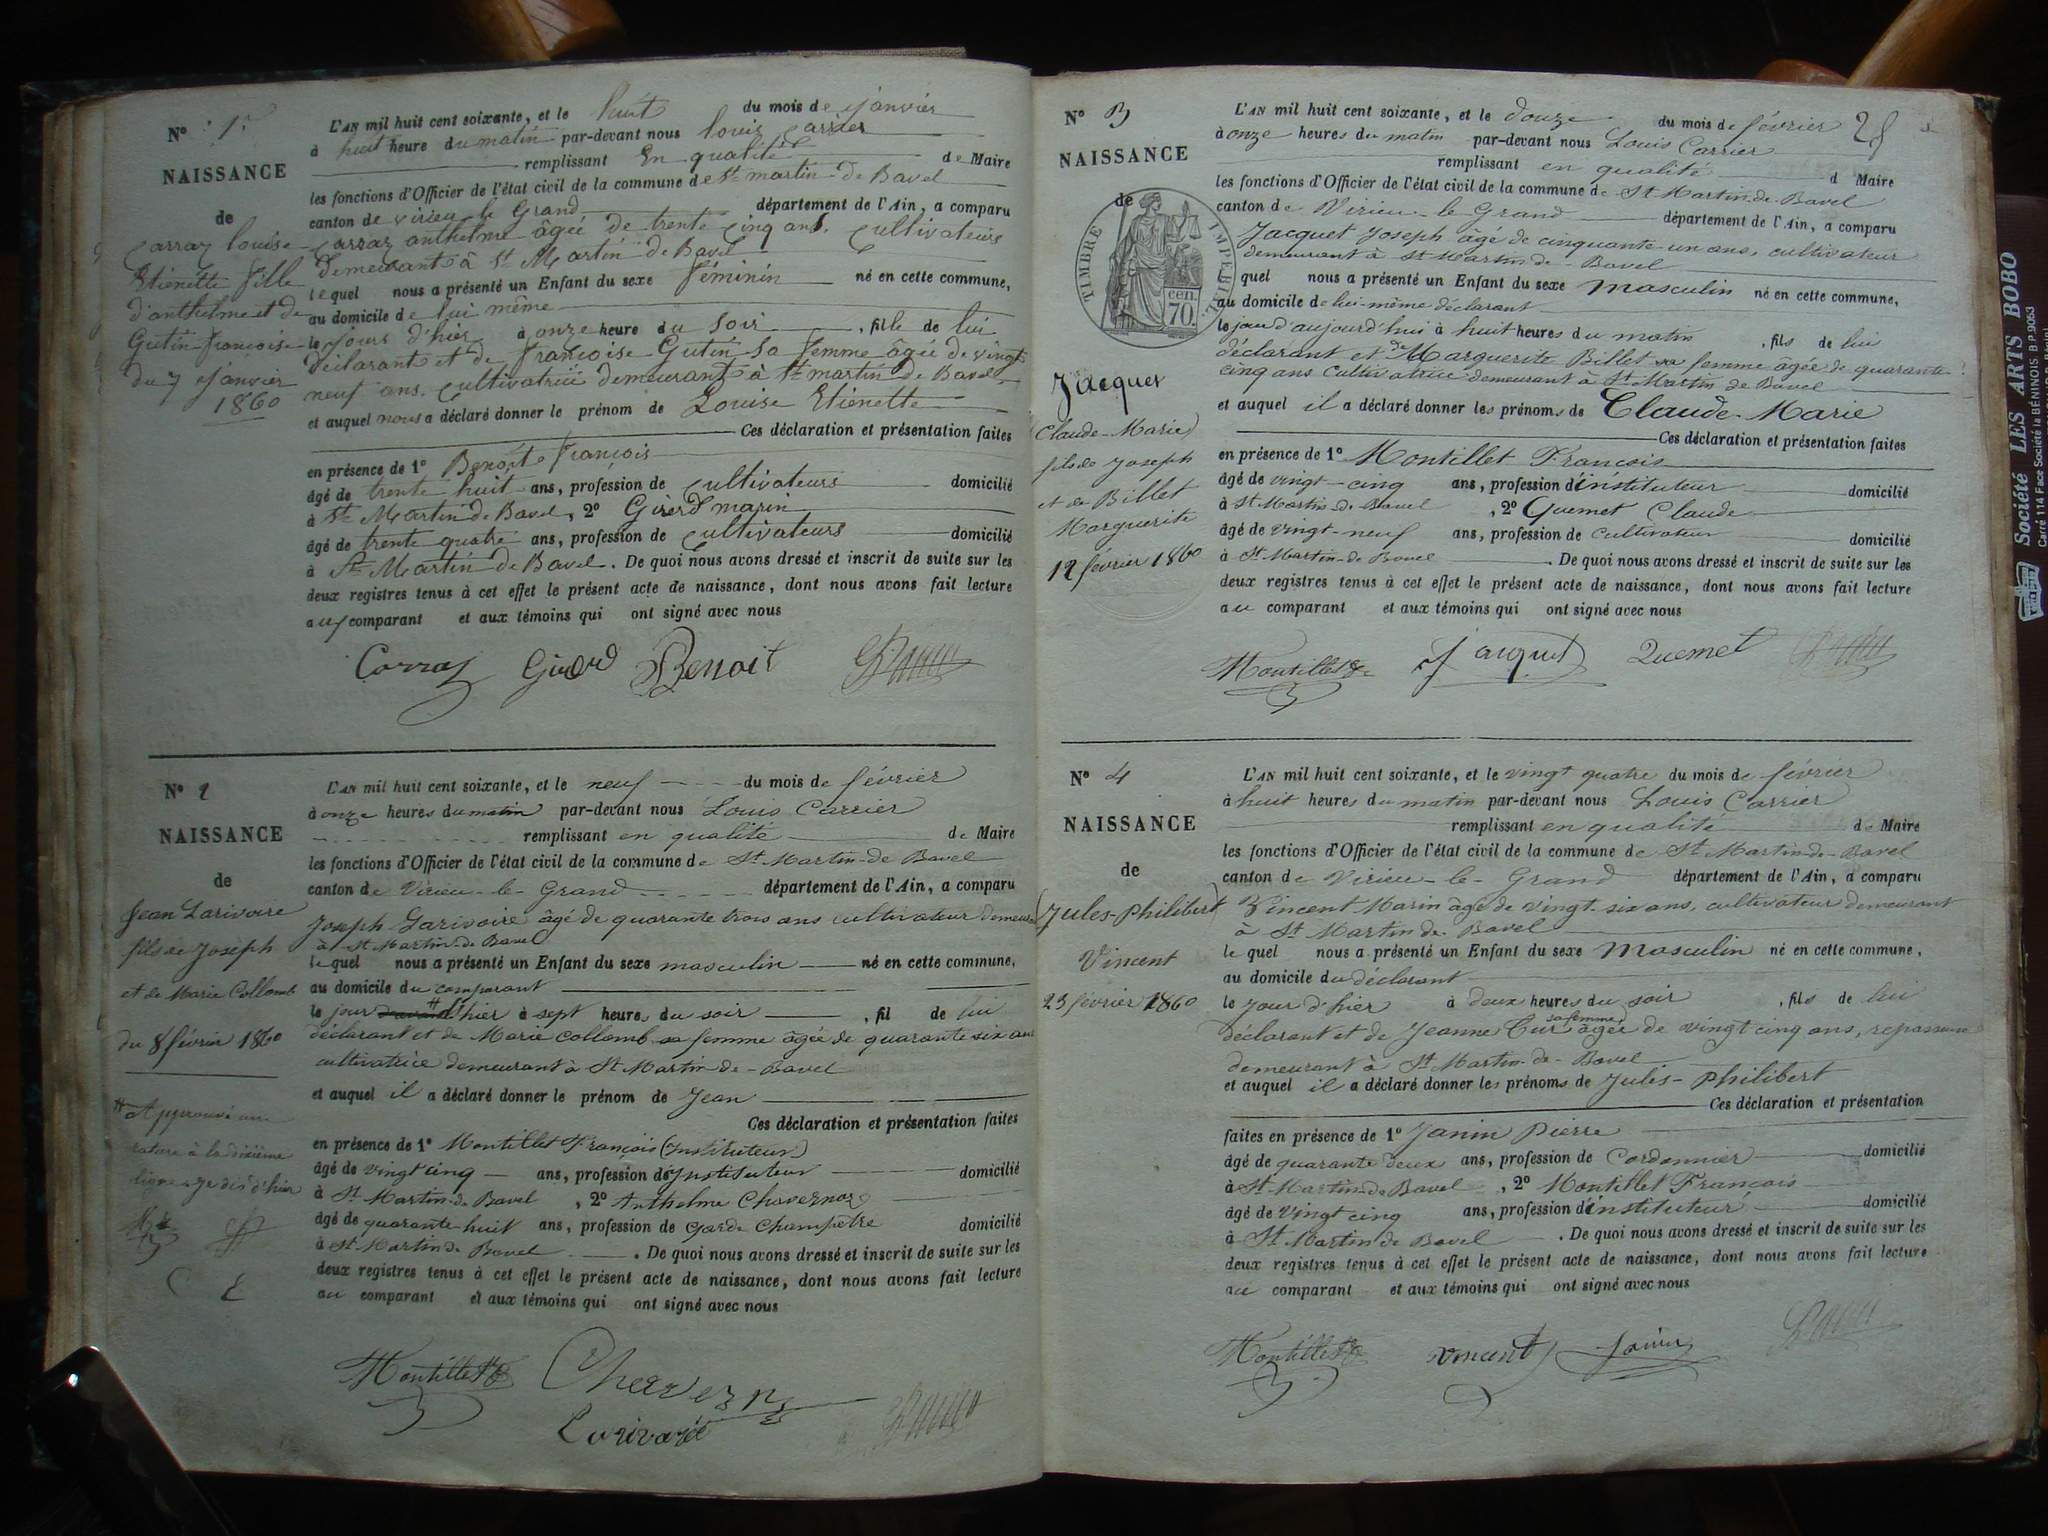 N° 1r
NAISSANCE
de
Carraz louise
Etienette fille
d'anthelme et de
Gutin françoise
du 7 janvier
1860
L'AN mil huit cent soixante, et le huit du mois de janvier
à huit heure du matin par-devant nous louis carrier
remplissant En qualité de Maire
les fonctions d'Officier de l'état civil de la commune de St martin de Bavel
canton de virieu le Grand département de l'Ain, a comparu
Carraz anthelme âgée de trente cinq ans, cultivateurs
demeurant à St Martin de Bavel
lequel nous a présenté un Enfant du sexe féminin né en cette commune,
au domicile de lui même
le jours d'hier à onze heure du soir, fille de lui
déclarant et de françoise Gutin sa femme âgée de vingt
neuf ans, cultivatrice demeurant à St martin de Bavel
et auquel nous a déclaré donner le prénom de Louise Etienette
Ces déclaration et présentation faites
en présence de 1° Benoit françois
âgé de trente huit ans, profession de cultivateurs domicilié
à St Martin de Bavel, 2° Girerd marin
âgé de trente quatre ans, profession de cultivateurs domicilié
à St Martin de Bavel. De quoi nous avons dressé et inscrit de suite sur les
deux registres tenus à cet effet le présent acte de naissance, dont nous avons fait lecture
aux comparant et aux témoins qui ont signé avec nous
Carraz Girerd Benoit
N° 2
NAISSANCE
de
Jean Larivoire
fils de Joseph
et de Marie Collomb
du 8 février 1860
# Approuvé une
rature à la dixième
ligne
L'AN mil huit cent soixante, et le neuf du mois de février
à onze heures du matin par-devant nous Louis Carrier
remplissant en qualité de Maire
les fonctions d'Officier de l'état civil de la commune de St Martin-de Bavel
canton de Virieu-le-Grand département de l'Ain, a comparu
Joseph Larivoire âgé de quarante trois ans cultivateur demeurant
à St Martin-de Bavel
le quel nous a présenté un Enfant du sexe masculin né en cette commune,
au domicile du comparant
le jour # d'hier à sept heures du soir, fil de lui
déclarant et de Marie Collomb sa femme âgée de quarante six ans
cultivatrice demeurant à St Martin-de-Bavel
et auquel il a déclaré donner le prénom de Jean
Ces déclaration et présentation faites
en présence de 1° Montillet François (instituteur)
âgé de vingt cinq ans, profession de Instituteur domicilié
à St Martin-de Bavel, 2° Anthelme Chavernoz
âgé de quarante-huit ans, profession de Garde Champêtre domicilié
à St Martin de Bavel. De quoi nous avons dressé et inscrit de suite sur les
deux registres tenus à cet effet le présent acte de naissance, dont nous avons fait lecture
au comparant et aux témoins qui ont signé avec nous
Montillet
Larivoire
N° 3
NAISSANCE
de
TIMBRE IMPÉRIAL
70 cen.
Jacquet
(Claude-Marie)
fils de Joseph
et de Billet
Marguerite
12 février 1860
28
L'AN mil huit cent soixante, et le douze du mois de février
à onze heures du matin par-devant nous Louis Carrier
remplissant en qualité d Maire
les fonctions d'Officier de l'état civil de la commune de St Martin-de-Bavel
canton de Virieu-le-Grand département de l'Ain, a comparu
Jacquet Joseph âgé de cinquante-un ans, cultivateur
demeurant à St Martin-de-Bavel
quel nous a présenté un Enfant du sexe Masculin né en cette commune,
au domicile de lui-même déclarant
le jour d'aujourd'hui à huit heures du matin, fils de lui
déclarant et de Marguerite Billet sa femme âgée de quarante
cinq ans Cultivatrice demeurant à St Martin de Bavel
et auquel il a déclaré donner les prénoms de Claude-Marie
Ces déclaration et présentation faites
en présence de 1° Montillet François
âgé de vingt-cinq ans, profession d'instituteur domicilié
à St Martin-de Bavel, 2° Quemet Claude
âgé de vingt-neuf ans, profession de cultivateur domicilié
à St Martin-de Bavel. De quoi nous avons dressé et inscrit de suite sur les
deux registres tenus à cet effet le présent acte de naissance, dont nous avons fait lecture
au comparant et aux témoins qui ont signé avec nous
Montillet Jacquet Quemet
N° 4
NAISSANCE
de
(Jules-Philibert)
Vincent
23 février 1860
L'AN mil huit cent soixante, et le vingt quatre du mois de février
à huit heures du matin par-devant nous Louis Carrier
remplissant en qualité de Maire
les fonctions d'Officier de l'état civil de la commune de St Martin-de-Bavel
canton de Virieu-le-Grand département de l'Ain, a comparu
Vincent Marin âgé de vingt-six ans, cultivateur demeurant
à St Martin-de-Bavel
le quel nous a présenté un Enfant du sexe Masculin né en cette commune,
au domicile du déclarant
le jour d'hier à deux heures du soir, fils de lui
déclarant et de Jeanne Cur sa femme âgée de vingt cinq ans, repasseuse
demeurant à St Martin-de-Bavel
et auquel il a déclaré donner les prénoms de Jules-Philibert
Ces déclaration et présentation
faites en présence de 1° Janin Pierre
âgé de quarante deux ans, profession de Cordonnier domicilié
à St Martin de Bavel, 2° Montillet François
âgé de vingt cinq ans, profession d'instituteur domicilié
à St Martin de Bavel. De quoi nous avons dressé et inscrit de suite sur les
deux registres tenus à cet effet le présent acte de naissance, dont nous avons fait lecture
au comparant et aux témoins qui ont signé avec nous
Montillet Vincent Janin
Société LES ARTS BOBO
Carré 114 Face Société la BÉNINOIS B.P. 9053